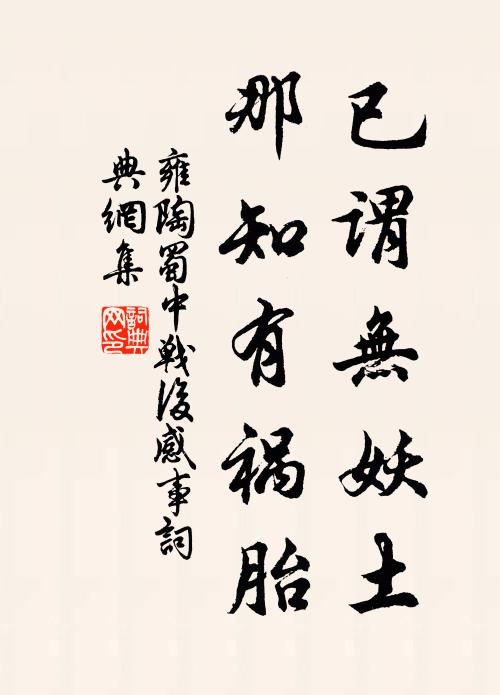 已謂無妖土
那知有禍胎
雍陶蜀中戰後感事詞
典網集
詞典
网印